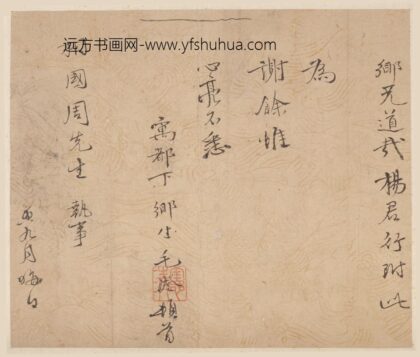 远方书画网-www.yfshuhua.com
鄉兄道武楊君行附此
為
謝餘惟
心亮不悉
寓郡下鄉生毛 頓首
國周先生 執事
九月晦日